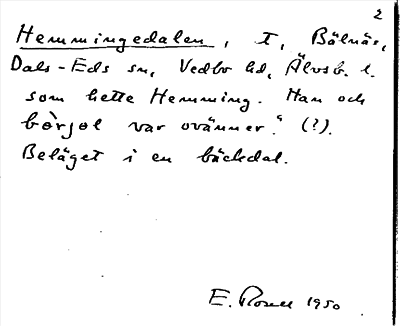 2
Hemmingedalen, T, Bälnäs,
Dals-Eds sn, Vedbo hd, Älvsb. l.
som hette Hemming. Han och
börjol var ovänner." (?).
Beläget i en bäckdal.
E. 1950